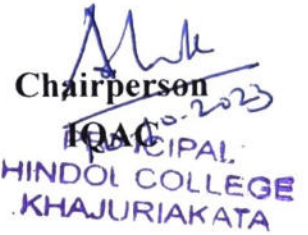 Chairperson
IQAC
PRINCIPAL
HINDOL COLLEGE
KHAJURIAKATA